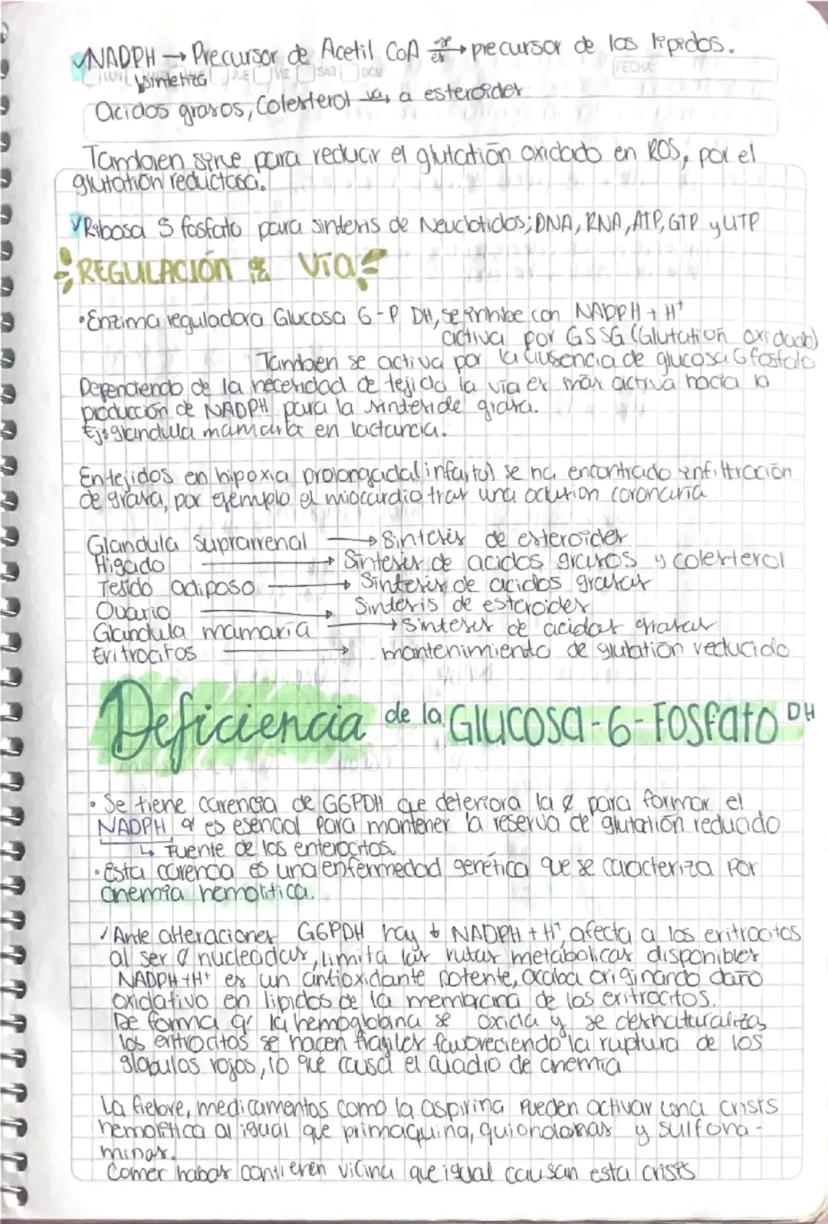 NADPH → Precursor de Acetil CoA es→ precursor de los lipidos.
↳ sintetiza
FECHA
Acidos grasos, Colesterol va a esteroides
Tambien sirve para reducir el glutatión oxidado en ROS, por el
glutation reductasa.
Ribosa 5 fosfato para sintesis de Neuclotidos; DNA, RNA, ATP, GTP y UTP
REGULACIÓN Vía
• Enzima reguladora Glucosa 6-P DH, se inhibe con NADPH + H⁺
activa por GSSG (Glutation oxidado)
Tambien se activa por la ausencia de glucosa 6 fosfato
Dependiendo de la necesidad de tejido la vía es más activa hacia la
producción de NADPH para la sintesis de grasa.
Ej: glandula mamaria en lactancia.
En tejidos en hipoxia prolongada (infarto) se ha encontrado infiltración
de grasa, por ejemplo el miocardio tras una oclusion coronaria
Glandula suprarrenal → Sintesis de esteroides
Higado → Sintesis de acidos grasos y colesterol
Tejido adiposo → Sintesis de acidos grasas
Ovario → Sintesis de esteroides
Glandula mamaria → Sintesis de acidas grasas
Eritrocitos → mantenimiento de glutation reducido
Deficiencia de la Glucosa-6-Fosfato DH
• Se tiene carencia de G6PDH que deteriora la ȼ para formar el
NADPH q' es esencial para mantener la reserva de glutatión reducido
↳ Fuente de los enterocitos
• Esta carencia es una enfermedad genética que se caracteriza por
anemia hemolitica.
✓ Ante alteraciones G6PDH hay ↓ NADPH + H⁺, afecta a los eritrocitos
al ser Ø nucleadas, limita las rutas metabolicas disponibles
NADPH + H⁺ es un antioxidante potente, acaba originando daño
oxidativo en lipidos de la membrana de los eritrocitos.
De forma q' la hemoglobina se oxida y se desnaturaliza,
los eritrocitos se hacen fragiles favoreciendo la ruptura de los
globulos rojos, lo que causa el cuadio de anemia
La fiebre, medicamentos como la aspirina pueden activar una crisis
hemolitica al igual que primaquina, quiondonas y sulfona-
minas.
Comer habas contieren vicina que igual causan esta crisis